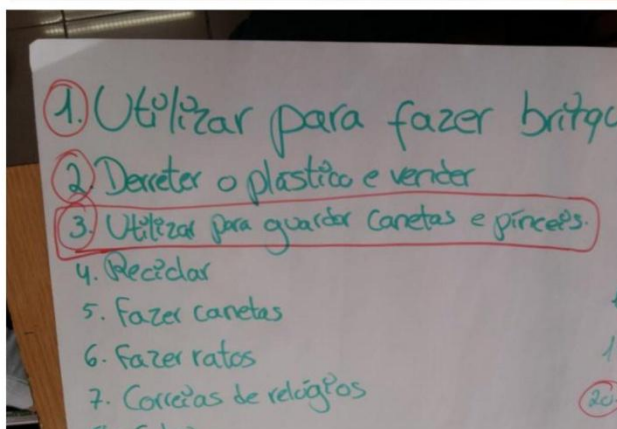 1. Utilizar para fazer
2. Derreter o plástico e vender
3. Utilizar para guardar canetas e pincéis.
4. Reciclar
5. Fazer canetas
6. Fazer ratos
7. Correias de relógios
20